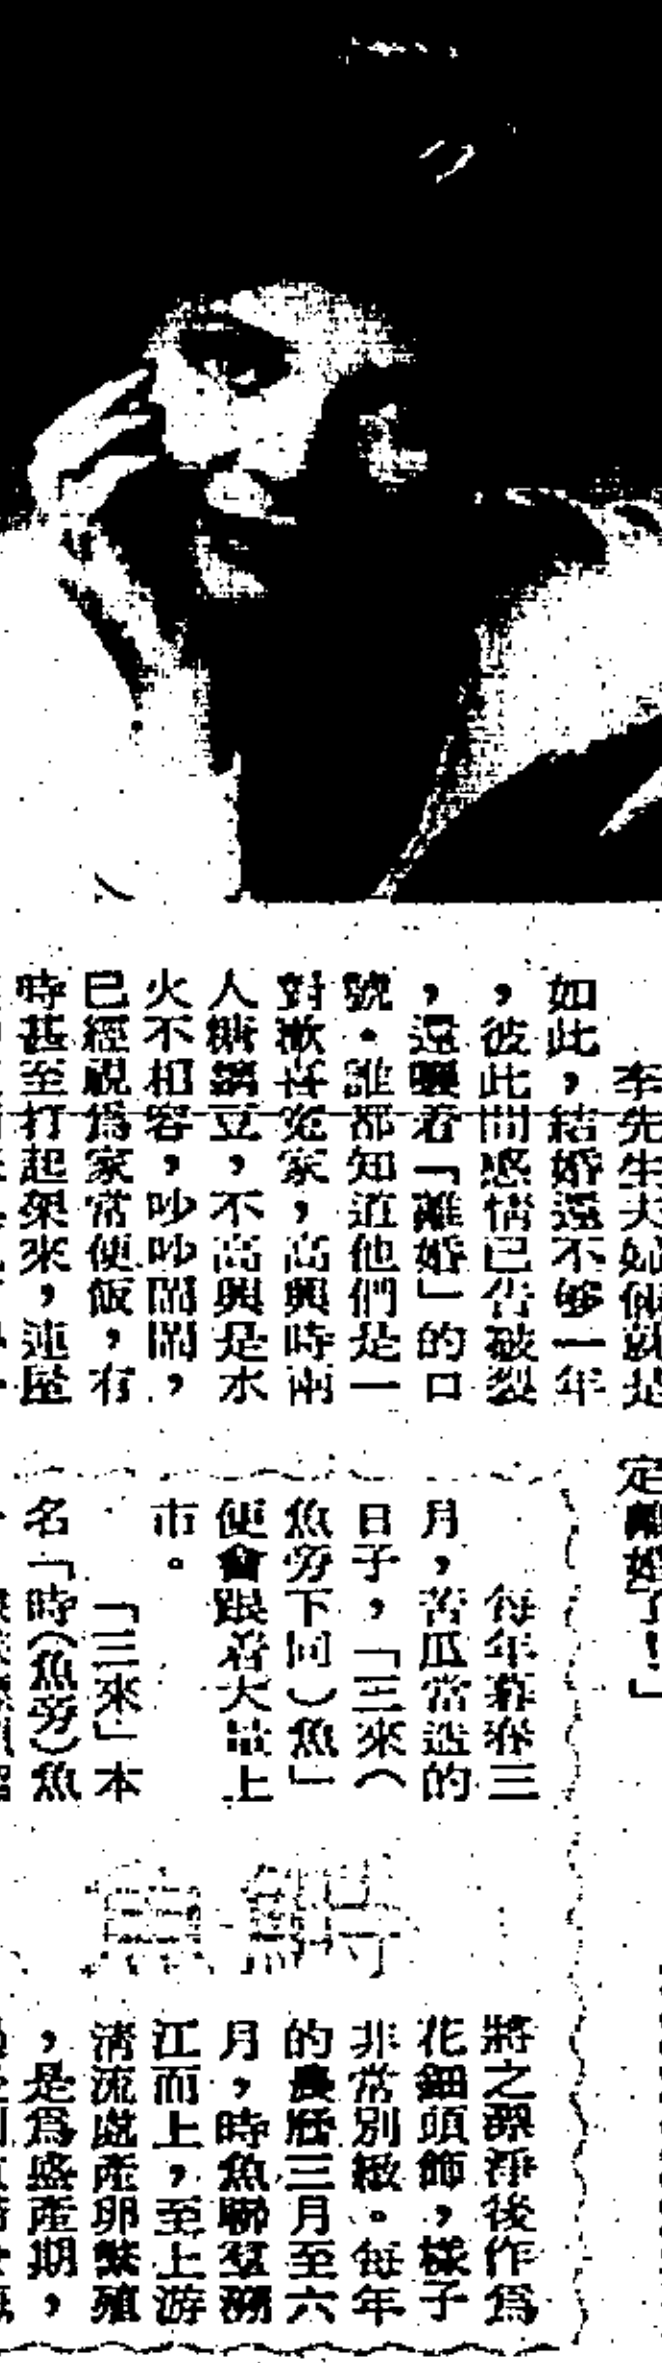 李先生夫婦倆就是
如此，結婚還不够一年
，彼此間感情已告破裂
，還嚷着「離婚」的口
號。誰都知道他們是一
對歡喜寃家，高興時兩
人糖黐豆，不高興是水
火不相容，吵吵鬧鬧，
已經視爲家常便飯，有
時甚至打起架來，連屋
定離婚了！」
每年暮春三
月，苦瓜當造的
日子，「三來（
魚旁下同）魚」
便會跟着大量上
市。
「三來」本
名「時（魚旁）魚
鰣魚
將之漂淨後作爲
花鈿頭飾，樣子
非常別緻。每年
的農曆三月至六
月，時魚聯羣溯
江而上，至上游
清流處產卵繁殖
，是爲盛產期，